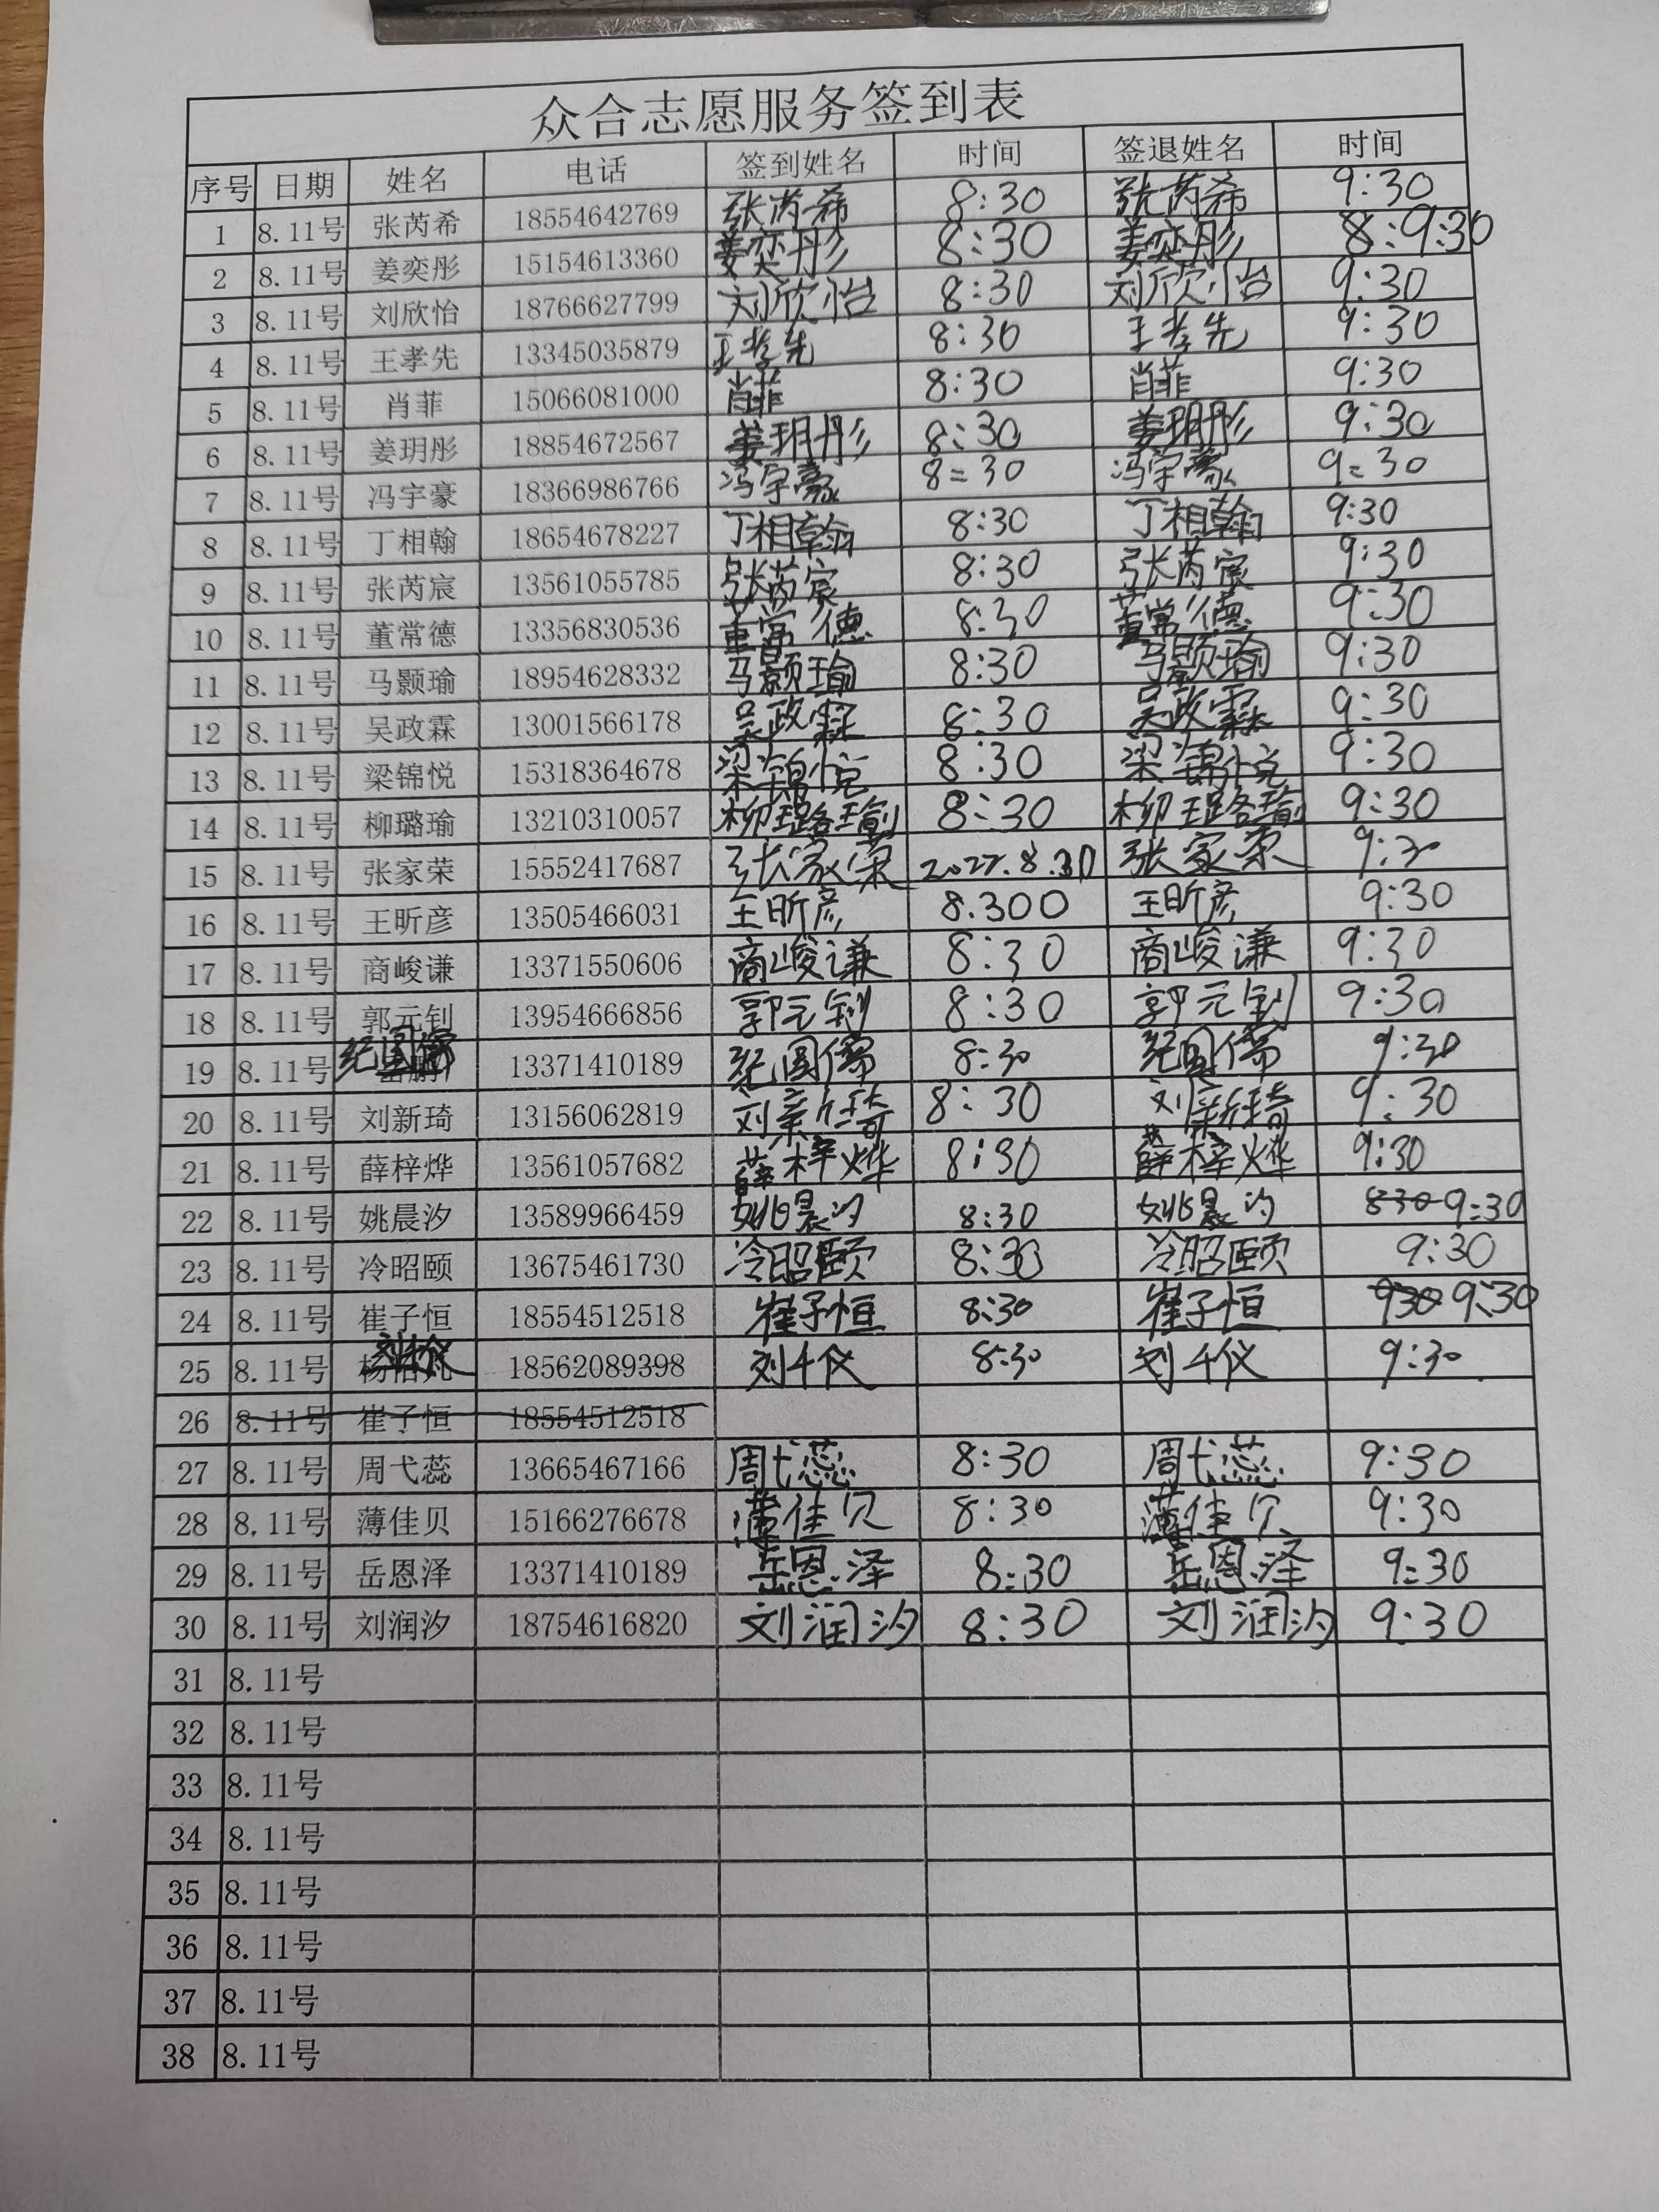 众合志愿服务签到表
序号 日期 姓名 电话 签到姓名 时间 签退姓名 时间
1 8.11号 张芮希 18554642769 张芮希 8:30 张芮希 9:30
2 8.11号 姜奕彤 15154613360 姜奕彤 8:30 姜奕彤 8:9:30
3 8.11号 刘欣怡 18766627799 刘欣怡 8:30 刘欣怡 9:30
4 8.11号 王孝先 13345035879 王孝先 8:30 王孝先 9:30
5 8.11号 肖菲 15066081000 肖菲 8:30 肖菲 9:30
6 8.11号 姜玥彤 18854672567 姜玥彤 8:30 姜玥彤 9:30
7 8.11号 冯宇豪 18366986766 冯宇豪 8=30 冯宇豪 9=30
8 8.11号 丁相翰 18654678227 丁相翰 8:30 丁相翰 9:30
9 8.11号 张芮宸 13561055785 张芮宸 8:30 张芮宸 9:30
10 8.11号 董常德 13356830536 董常德 8:30 董常德 9:30
11 8.11号 马颢瑜 18954628332 马颢瑜 8:30 马颢瑜 9:30
12 8.11号 吴政霖 13001566178 吴政霖 8:30 吴政霖 9:30
13 8.11号 梁锦悦 15318364678 梁锦悦 8:30 梁锦悦 9:30
14 8.11号 柳璐瑜 13210310057 柳璐瑜 8:30 柳璐瑜 9:30
15 8.11号 张家荣 15552417687 张家荣 8.30 张家荣 9:30
16 8.11号 王昕彦 13505466031 王昕彦 8.300 王昕彦 9:30
17 8.11号 商峻谦 13371550606 商峻谦 8:30 商峻谦 9:30
18 8.11号 郭元钊 13954666856 郭元钊 8:30 郭元钊 9:30
19 8.11号 纪圆儒 13371410189 纪圆儒 8:30 纪圆儒 9:30
20 8.11号 刘新琦 13156062819 刘新琦 8:30 刘新琦 9:30
21 8.11号 薛梓烨 13561057682 薛梓烨 8:30 薛梓烨 9:30
22 8.11号 姚晨汐 13589966459 姚晨汐 8:30 姚晨汐 830 9:30
23 8.11号 冷昭颐 13675461730 冷昭颐 8:30 冷昭颐 9:30
24 8.11号 崔子恒 18554512518 崔子恒 8:30 崔子恒 930 9:30
25 8.11号 18562089398 刘千仪 8:30 刘千仪 9:30
26 8.11号 崔子恒 18554512518
27 8.11号 周弋蕊 13665467166 周弋蕊 8:30 周弋蕊 9:30
28 8.11号 薄佳贝 15166276678 薄佳贝 8:30 薄佳贝 9:30
29 8.11号 岳恩泽 13371410189 岳恩泽 8:30 岳恩泽 9:30
30 8.11号 刘润汐 18754616820 刘润汐 8:30 刘润汐 9:30
31 8.11号
32 8.11号
33 8.11号
34 8.11号
35 8.11号
36 8.11号
37 8.11号
38 8.11号